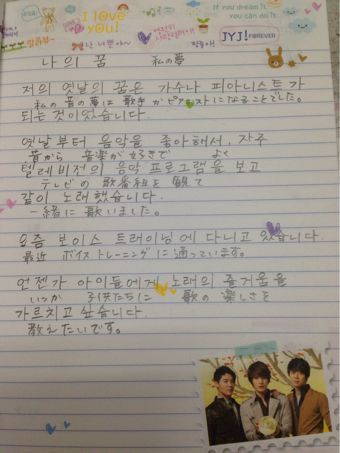 I love you!
If you dream it
you can do it.
JYJ! FOREVER
나의 꿈 私の夢
저의 옛날의 꿈은 가수나 피아니스트가
私の昔の夢は歌手かピアニストになることでした。
되는 것이었습니다
옛날부터 음악을 좋아해서, 자주
昔から 音楽が好きで よく
텔레비전의 음악 프로그램을 보고
テレビの 歌番組を 観て
같이 노래했습니다.
一緒に 歌いました。
요즘 보이스 트레이닝에 다니고 있습니다.
最近 ボイストレーニングに通っています。
언젠가 아이들에게 노래의 즐거움을
いつか 子供たちに 歌の 楽しさを
가르치고 싶습니다.
教えたいです。